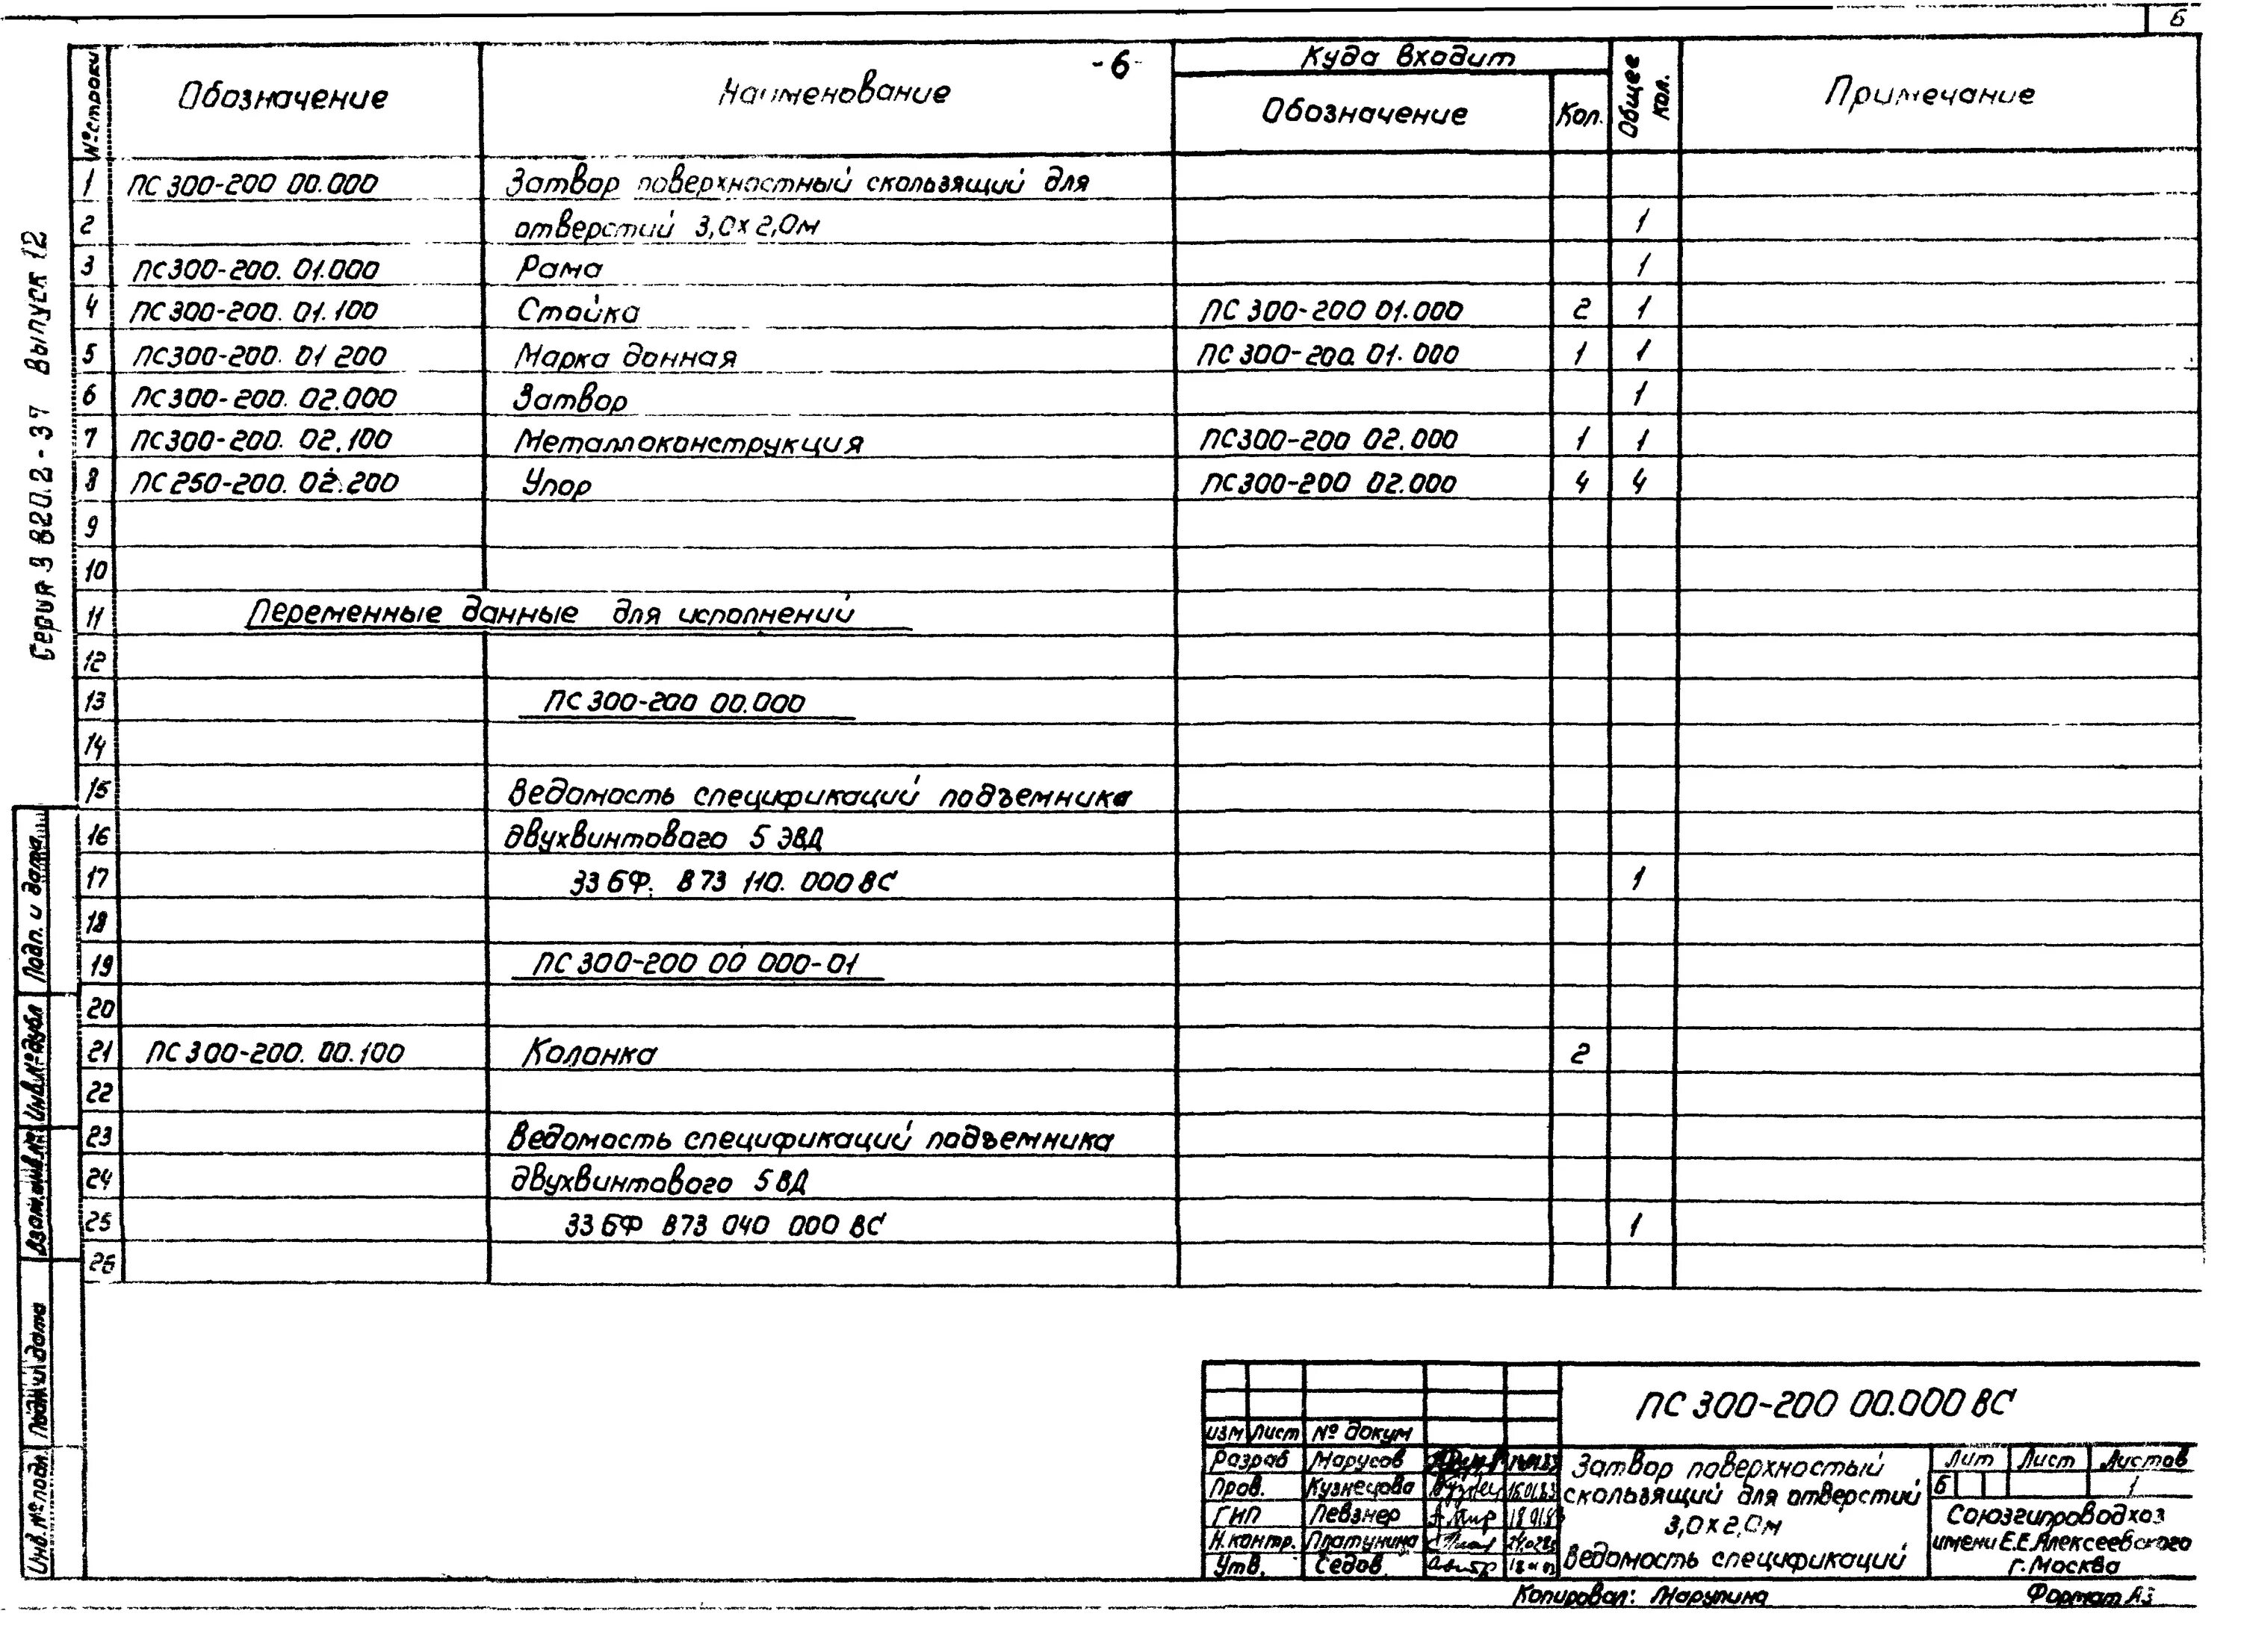 6
-6-
№ строки Обозначение Наименование Куда входит Общее кол. Примечание
Обозначение Кол.
1 ПС 300-200 00.000 Затвор поверхностный скользящий для
2 отверстий 3,0×2,0м 1
3 ПС300-200. 01.000 Рама 1
4 ПС300-200. 01.100 Стойка ПС 300-200 01.000 2 1
5 ПС300-200. 01 200 Марка донная ПС 300-200. 01. 000 1 1
6 ПС300-200. 02.000 Затвор 1
7 ПС300-200. 02.100 Металлоконструкция ПС300-200 02.000 1 1
8 ПС250-200. 02.200 Упор ПС300-200 02.000 4 4
9
10
11 Переменные данные для исполнений
12
13 ПС 300-200 00.000
14
15 Ведомость спецификаций подъемника
16 двухвинтового 5 ЭВД
17 33 БФ. В73 110. 000 ВС 1
18
19 ПС 300-200 00 000-01
20
21 ПС 300-200. 00.100 Колонка 2
22
23 Ведомость спецификаций подъемника
24 двухвинтового 5ВД
25 33 БФ В73 040 000 ВС 1
26
Серия 3 820.2-37 Выпуск 12
Подп. и дата
Инв.№ дубл
Взам.инв.№
Подп и дата
Инв.№ подл.
ПС 300-200 00.000 ВС
изм Лист № докум
Разраб Марусов
Пров. Кузнецова
ГИП Левзнер
Н.контр. Платунина
Утв. Седов
Затвор поверхностый
скользящий для отверстий
3,0×2,0м
Ведомость спецификаций
Лит Лист Листов
Б 1
Союзгипроводхоз
имени Е.Е.Алексеевского
г.Москва
Копировал: Марулина Формат А3